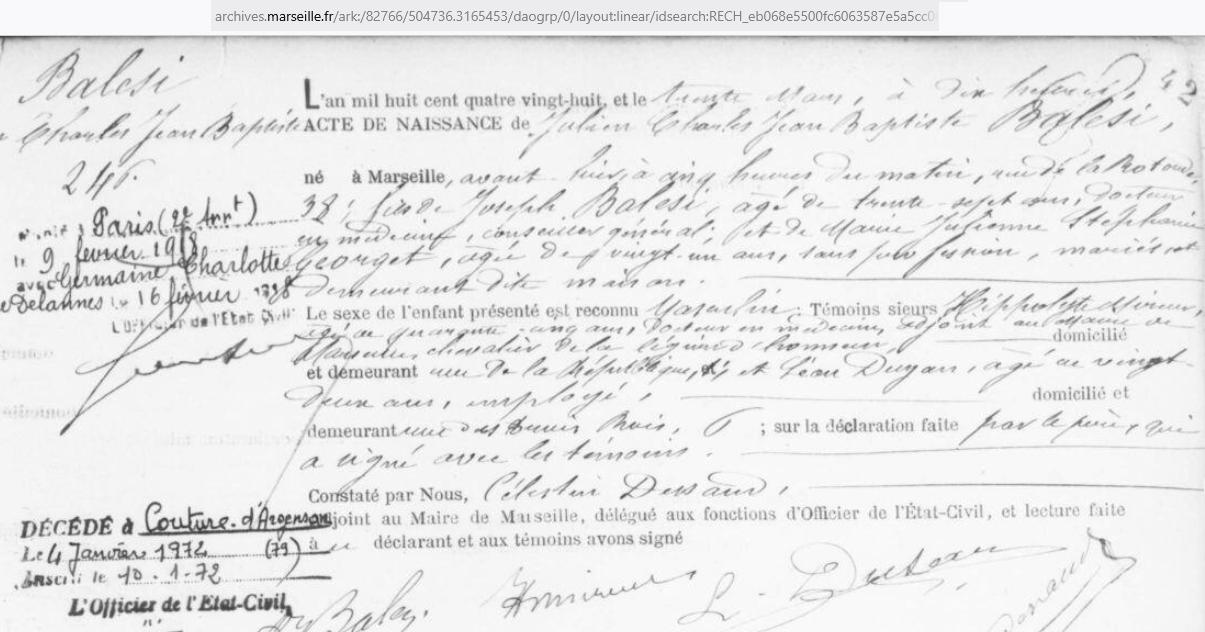 archives.marseille.fr/ark:/82766/504736.3165453/daogrp/0/layout:linear/idsearch:RECH_eb068e5500fc6063587e5a5cc0
42
Balesi
Charles Jean Baptiste
246
L'an mil huit cent quatre vingt-huit, et le trente Mars, à dix heures,
ACTE DE NAISSANCE de Julien Charles Jean Baptiste Balesi,
né à Marseille, avant hier, à cinq heures du matin, rue de la Rotonde,
38, fils de Joseph Balesi, âgé de trente-sept ans, docteur
en médecine, conseiller général, et de Marie Julienne Stephanie
Georget, âgée de vingt-un ans, sans profession, mariés et
demeurant dite maison.
Le sexe de l'enfant présenté est reconnu Masculin : Témoins sieurs Hippolyte
âgé de quarante-cinq ans, Docteur en médecine, adjoint au Maire de domicilié
Marseille, chevalier de la légion d'honneur,
et demeurant rue de la République, et Léon âgé de vingt
deux ans, employé, domicilié et
demeurant rue des 6 ; sur la déclaration faite par le père, qui
a signé avec les témoins.
Constaté par Nous, Célestin
adjoint au Maire de Marseille, délégué aux fonctions d'Officier de l'État-Civil, et lecture faite
à déclarant et aux témoins avons signé
Paris (9e Arrt)
le 9 février 1918
avec Germaine Charlotte
Delannes le 16 février 1918
L'Officier de l'Etat Civil
DÉCÉDÉ à Couture. d'Argenson
Le 4 Janvier 1972 (79)
Inscrit le 10.1-72
L'Officier de l'État-Civil,